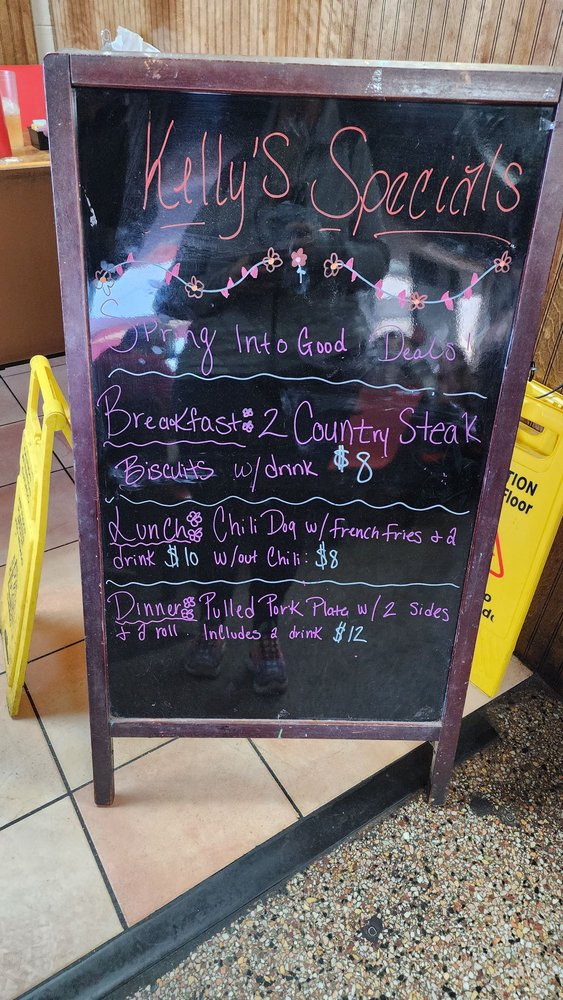 Kelly's Specials
Spring Into Good Deals!
Breakfast: 2 Country Steak
Biscuits w/drink $8
Lunch: Chili Dog w/french fries & a
drink $10 w/out Chili: $8
Dinner: Pulled Pork Plate w/ 2 Sides
& a roll. Includes a drink $12